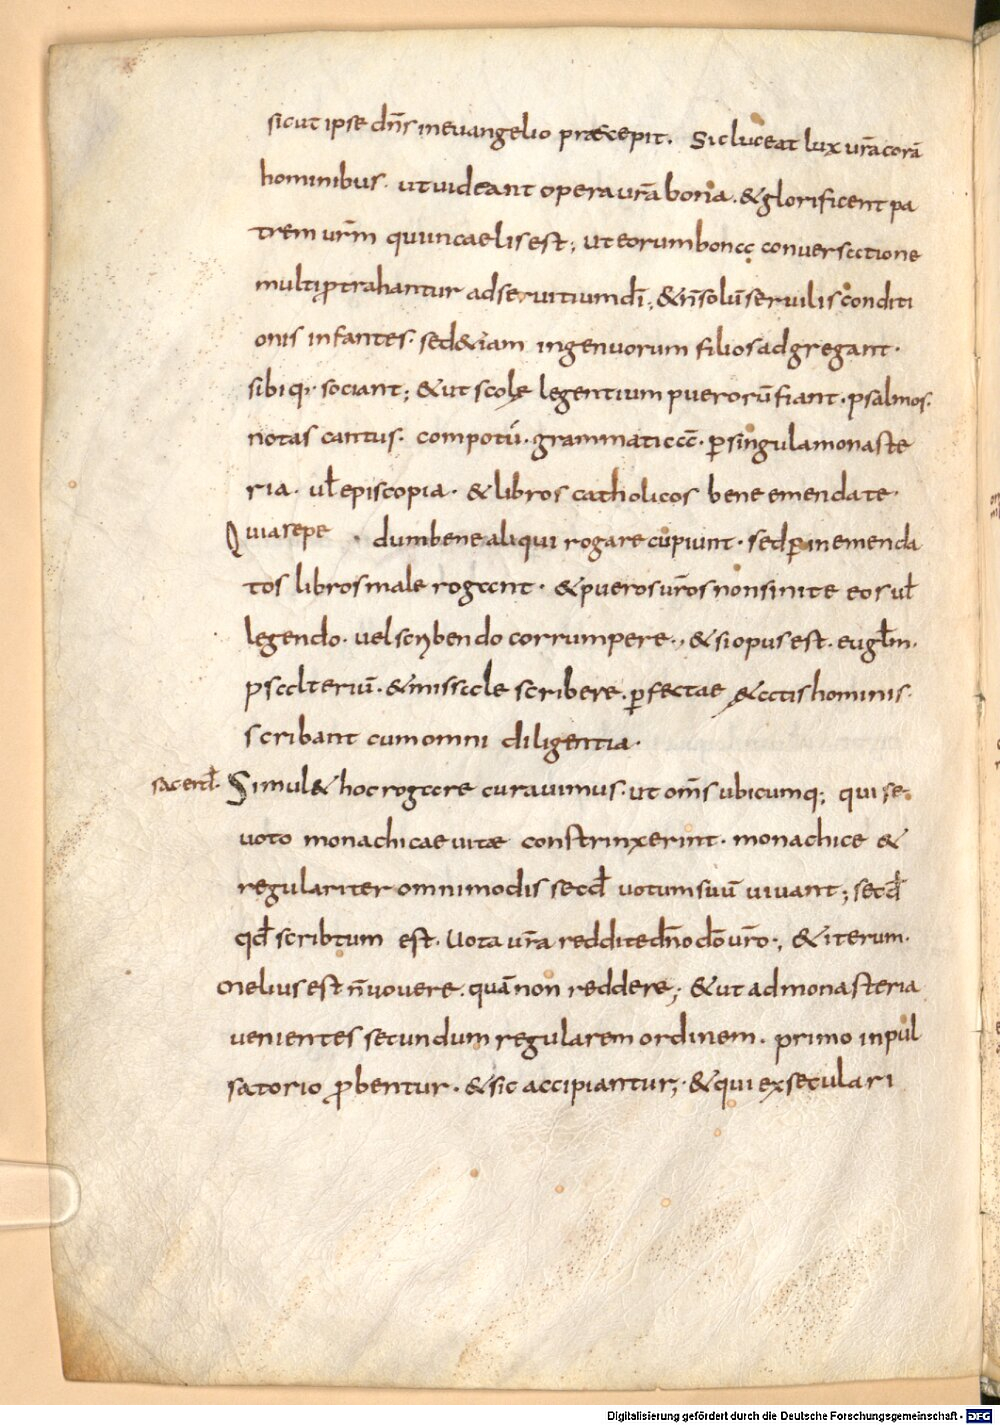 sicut ipse dn̄s in euangelio praecepit. Sic luceat lux ur̄a corā
hominibus. ut uideant opera ur̄a bona. & glorificent pa
trem ur̄m qui in caelis est; ut eorum bona conuersatione
multi ꝓtrahantur ad seruitium dī. & n̄ solū seruilis conditi
onis infantes. sed & iam ingenuorum filios adgregant.
sibiq. sociant; & ut scolę legentium puerorū fiant. psalmos.
notas cantus. compotū. grammaticā. ꝑ singula monaste
ria. ul̄ episcopia. & libros catholicos bene emendate.
Quia sepe . dum bene aliqui rogare cupiunt. sed ꝑ inemenda
tos libros male rogant. & pueros ur̄os non sinite eos ul̄
legendo. uel scribendo corrumpere., & si opus est. eugl̄m.
psalteriū. & missale scribere. ꝑfectae & atis hominis.
scribant cum omni diligentia.
sacerd̄. Simul & hoc rogare curauimus. ut om̄s ubicumq; qui se
uoto monachicae uitae constrinxerint. monachice &
regulariter omnimodis secd̄ uotum suū uiuant; secd̄
qd̄ scribtum est. Uota ur̄a reddite dn̄o dō ur̄o., & iterum.
Melius est n̄ uouere. quā non reddere; & ut ad monasteria
uenientes secundum regularem ordinem. primo in pul
satorio ꝓbentur. & sic accipiantur; & qui ex seculari
Digitalisierung gefördert durch die Deutsche Forschungsgemeinschaft - DFG